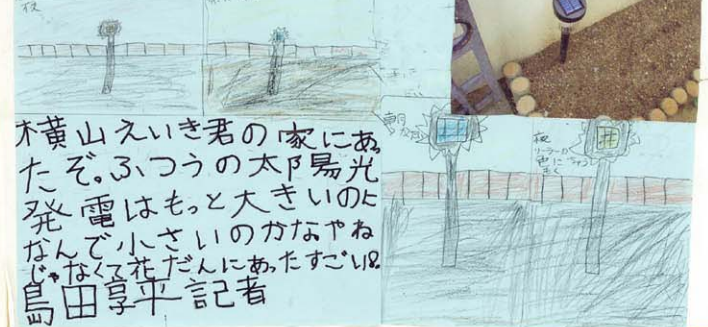 夜
横山えいき君の家にあっ
たぞ。ふつうの太陽光
発電はもっと大きいのに
なんで小さいのかなやね
じゃなくて花だんにあったすごい。
島田享平記者
朝
夜